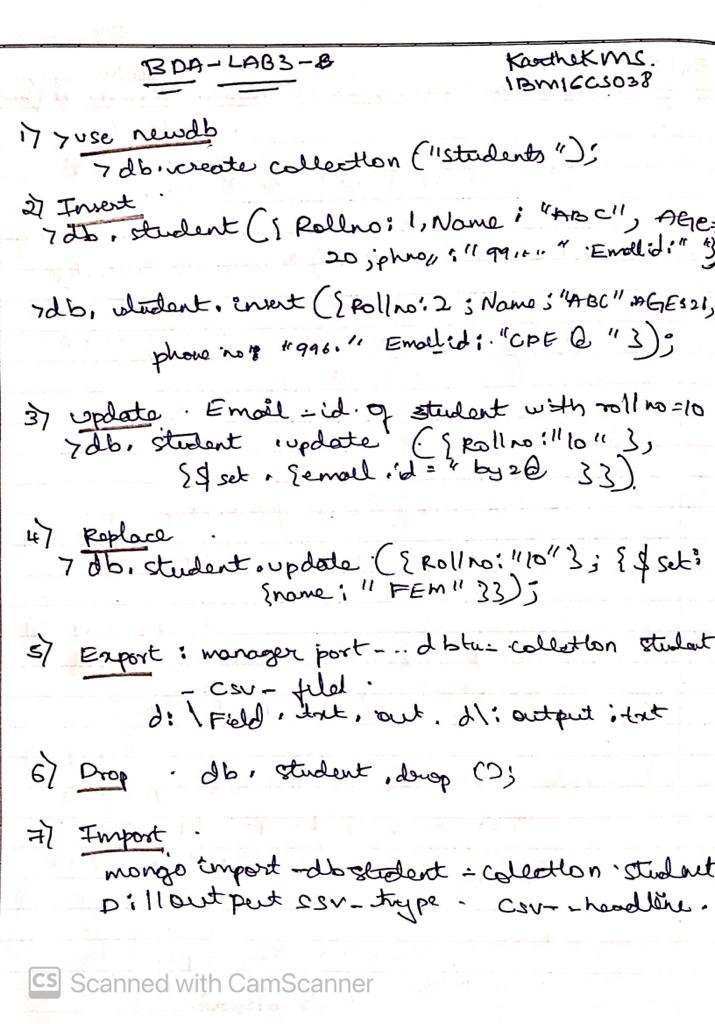 BDA-LAB3-B
Karthek M S.
1BM16CS038
1) > use newdb
> db.create collection ("students");
2) Insert
> db. student ({ Rollno: 1, Name : "ABC", AGE:
20 ; phno, : " 99...." Emailid:" "}
> db. student. insert ({Rollno: 2 ; Name ; "ABC" AGE:21,
phone no: "996." Email id : "CDE @ " });
3) update . Email-id. of student with roll no=10
> db. student .update ({Rollno:"10" },
{$ set . {email .id = " by2@ }})
4) Replace
> db. student.update ({Rollno: "10"}; {$ set:
{name : " FEM" }});
5) Export : manager port-.. collection student
- csv - filed .
d: \ Field . txt. out. d\: output ; txt
6) Drop . db. student .drop ();
7) Import .
mongo import -db student = collection . student
D: \\ output csv-type . csv--headline.
CS Scanned with CamScanner